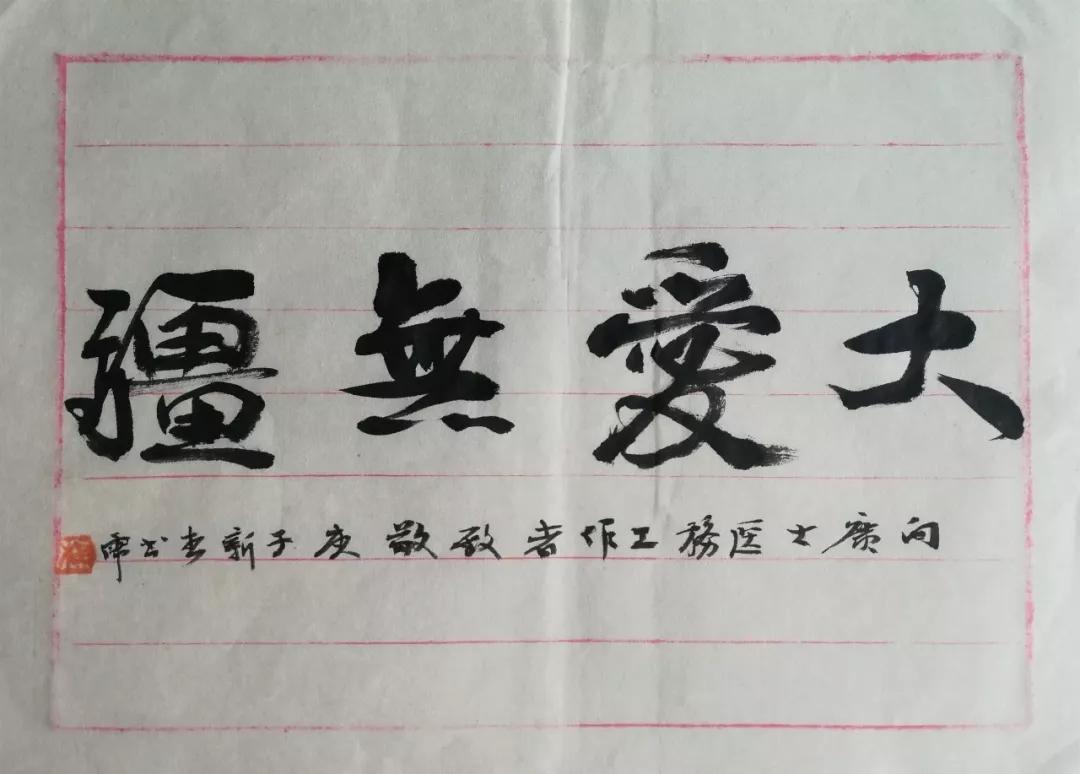 大愛無疆
向廣大医務工作者致敬庚子新春書